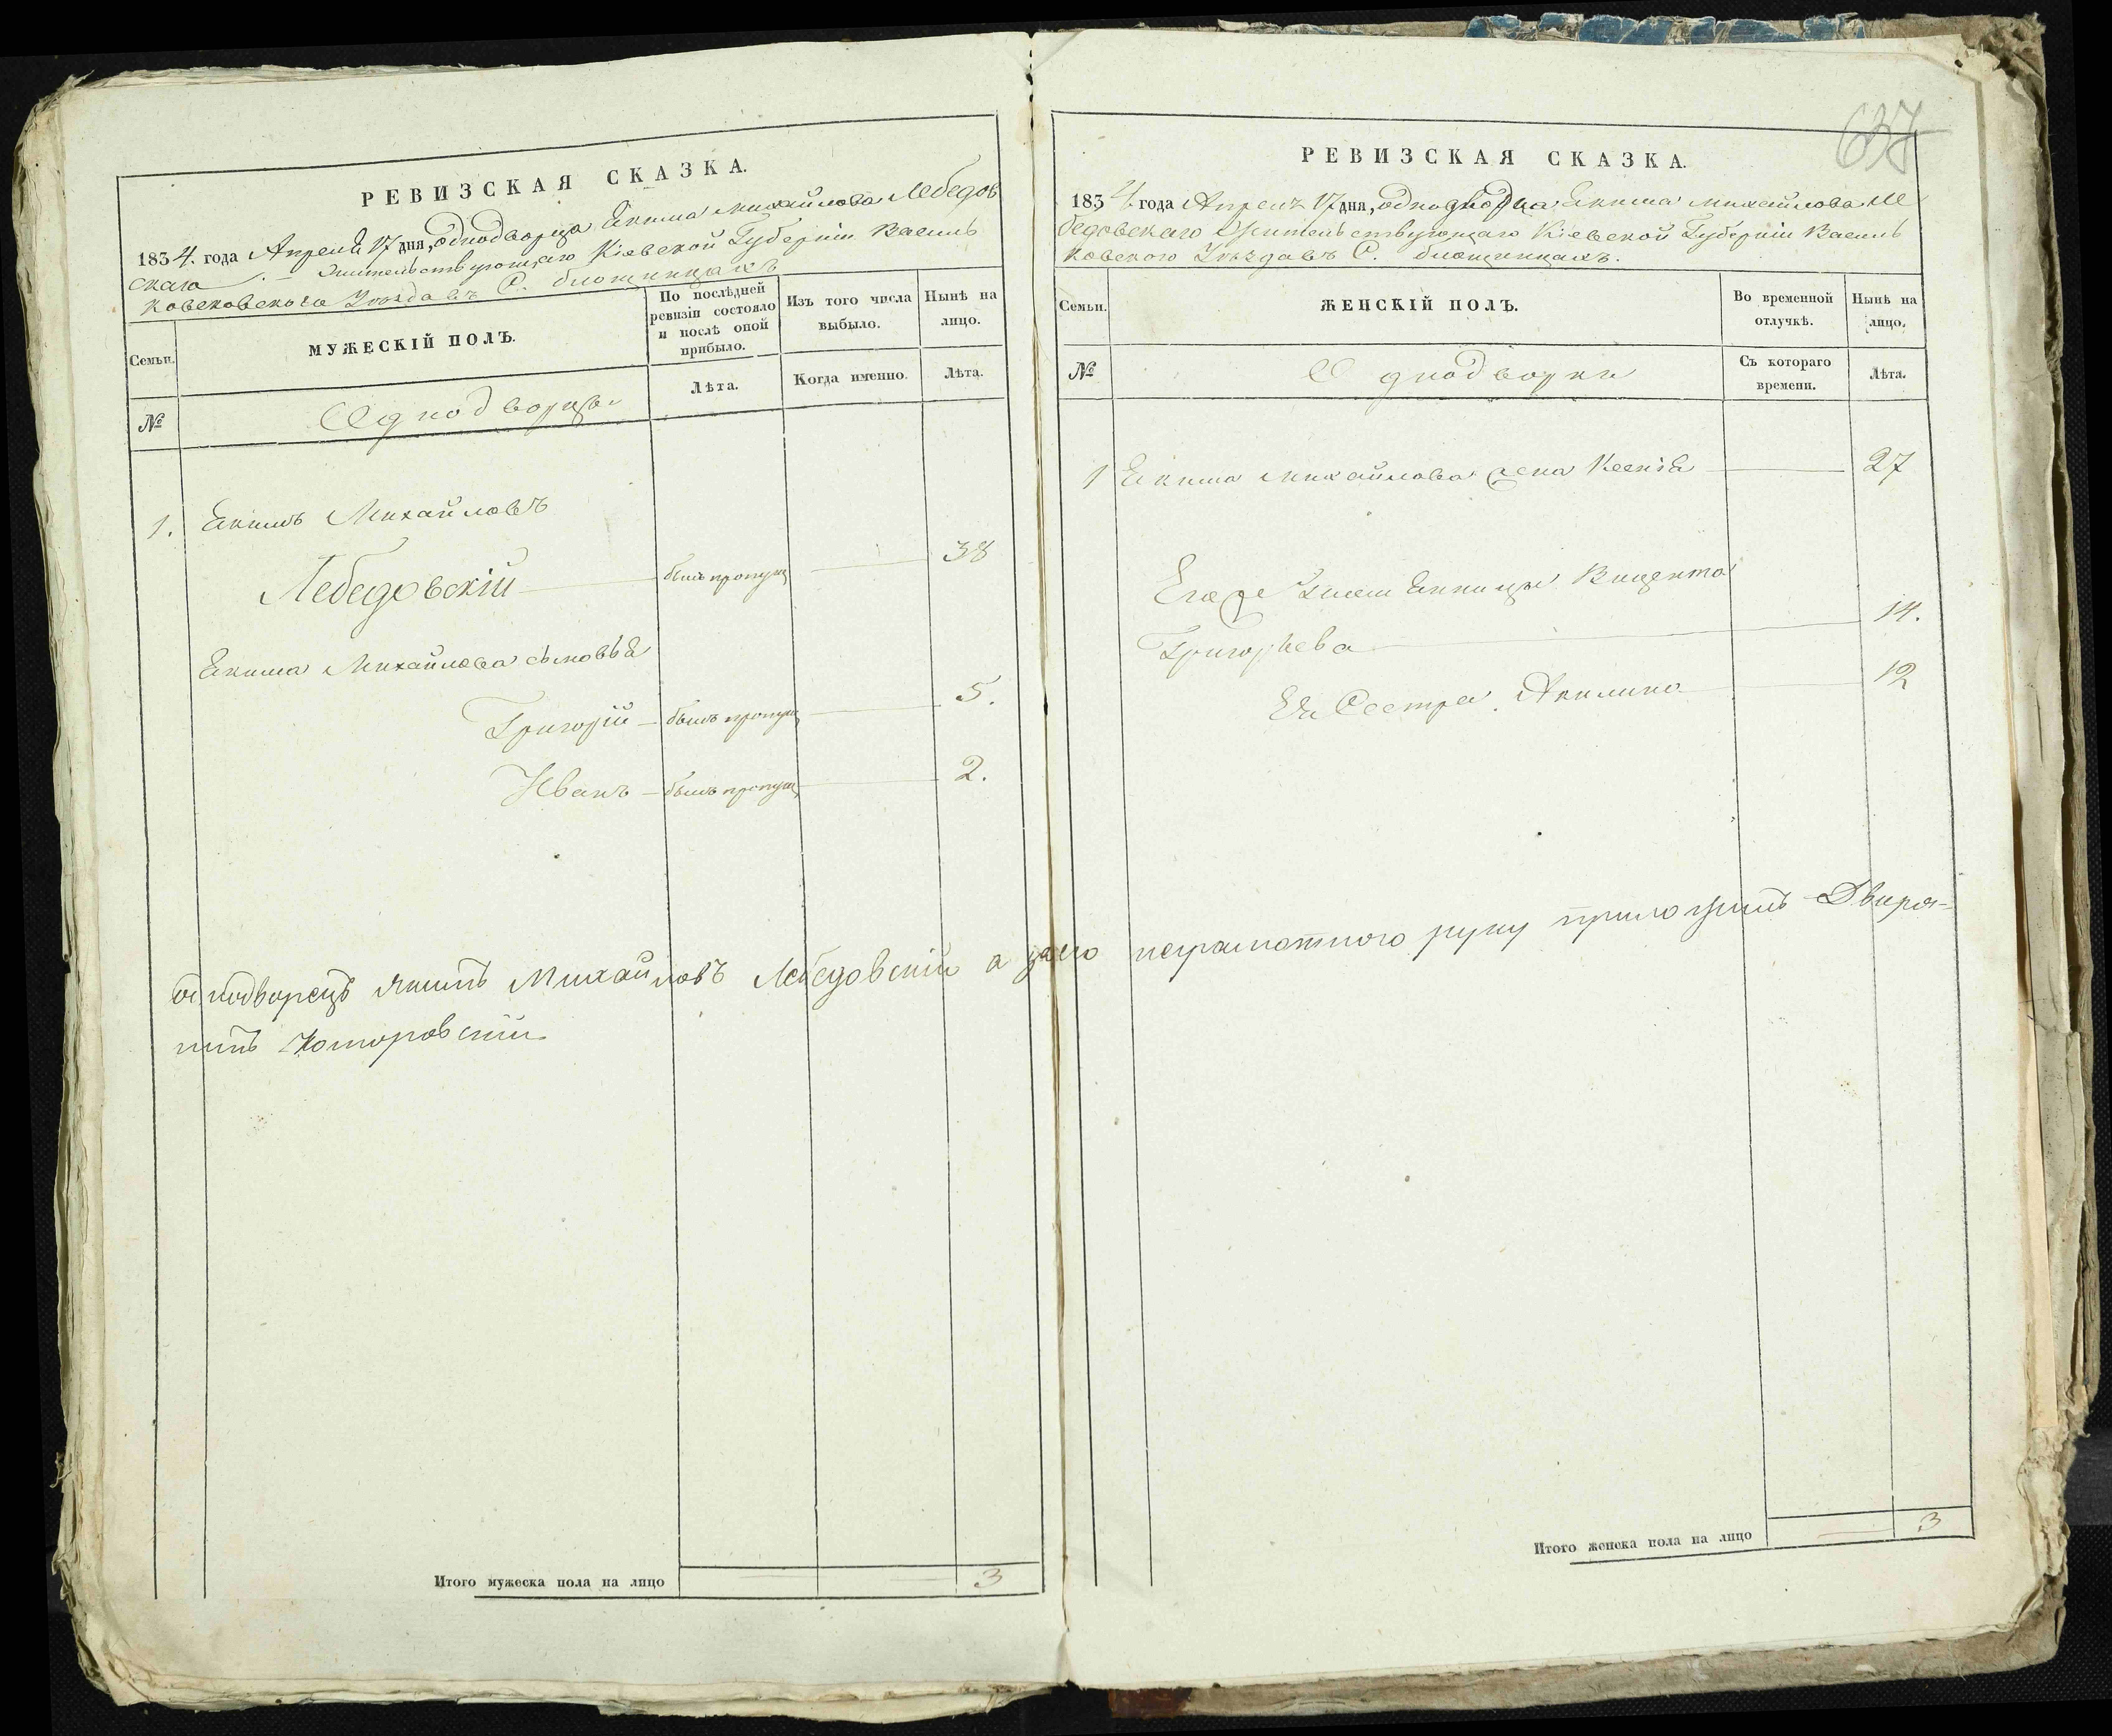 РЕВИЗСКАЯ СКАЗКА.
1834. года Апреля 17 дня, Однодворца Екима михайлова Лебедов
скаго Жительствующаго Кіевской Губерніи Василь
ковсковского Уезда въ С. блощинцахъ
Семьи.
МУЖЕСКІЙ ПОЛЪ.
По послѣдней ревизіи состояло и послѣ оной прибыло.
Изъ того числа выбыло.
Нынѣ на лицо.
№
Однодворцы
Лѣта.
Когда именно.
Лѣта.
1. Екимъ Михайловъ
Лебедовскій былъ пропущ 38
Екима Михайлова сыновья
Григорій былъ пропущ 5.
Иванъ былъ пропущ 2.
однодворецъ Якимъ Михайловъ Лебедовскій а за его неграмотного руку приложилъ Дворя=
нинъ
Итого мужеска пола на лицо 3
637
РЕВИЗСКАЯ СКАЗКА.
1834 года Апреля 17 дня, однодворца Екима михайлова Ле
бедовскаго Жительствующаго Кіевской Губерніи Василь
ковского Уезда въ С. блощинцахъ.
Семьи.
ЖЕНСКІЙ ПОЛЪ.
Во временной отлучкѣ.
Нынѣ на лицо.
№
Однодворки
Съ котораго времени.
Лѣта.
1 Екима Михайлова жена Ксенія 27
Его же Викента
Григорьева 14.
Ея Сестра Акилина 12
Итого женска пола на лицо 3